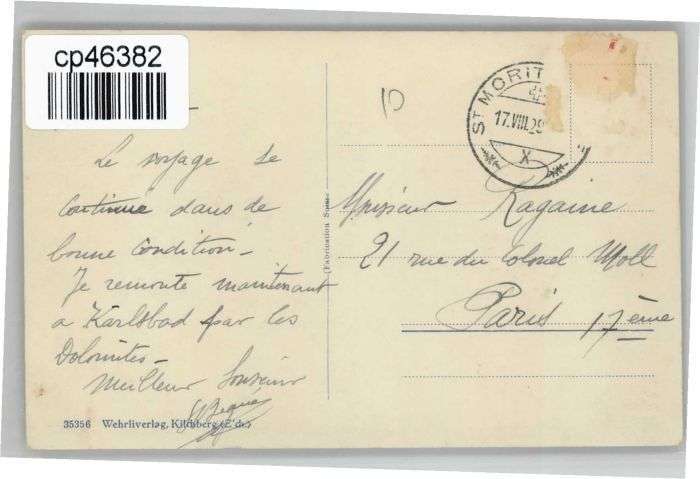 cp46382
10
ST MORITZ
17.VIII.29
X
Le voyage se
continue dans de
bonne condition -
Je remonte maintenant
a Karlsbad par les
Dolomites -
Meilleur Souvenir
Monsieur Ragaine
21 rue du Colonel Moll
Paris 17ème
(Fabrication Suisse)
35356 Wehrliverlag, Kilchberg (Zch.)